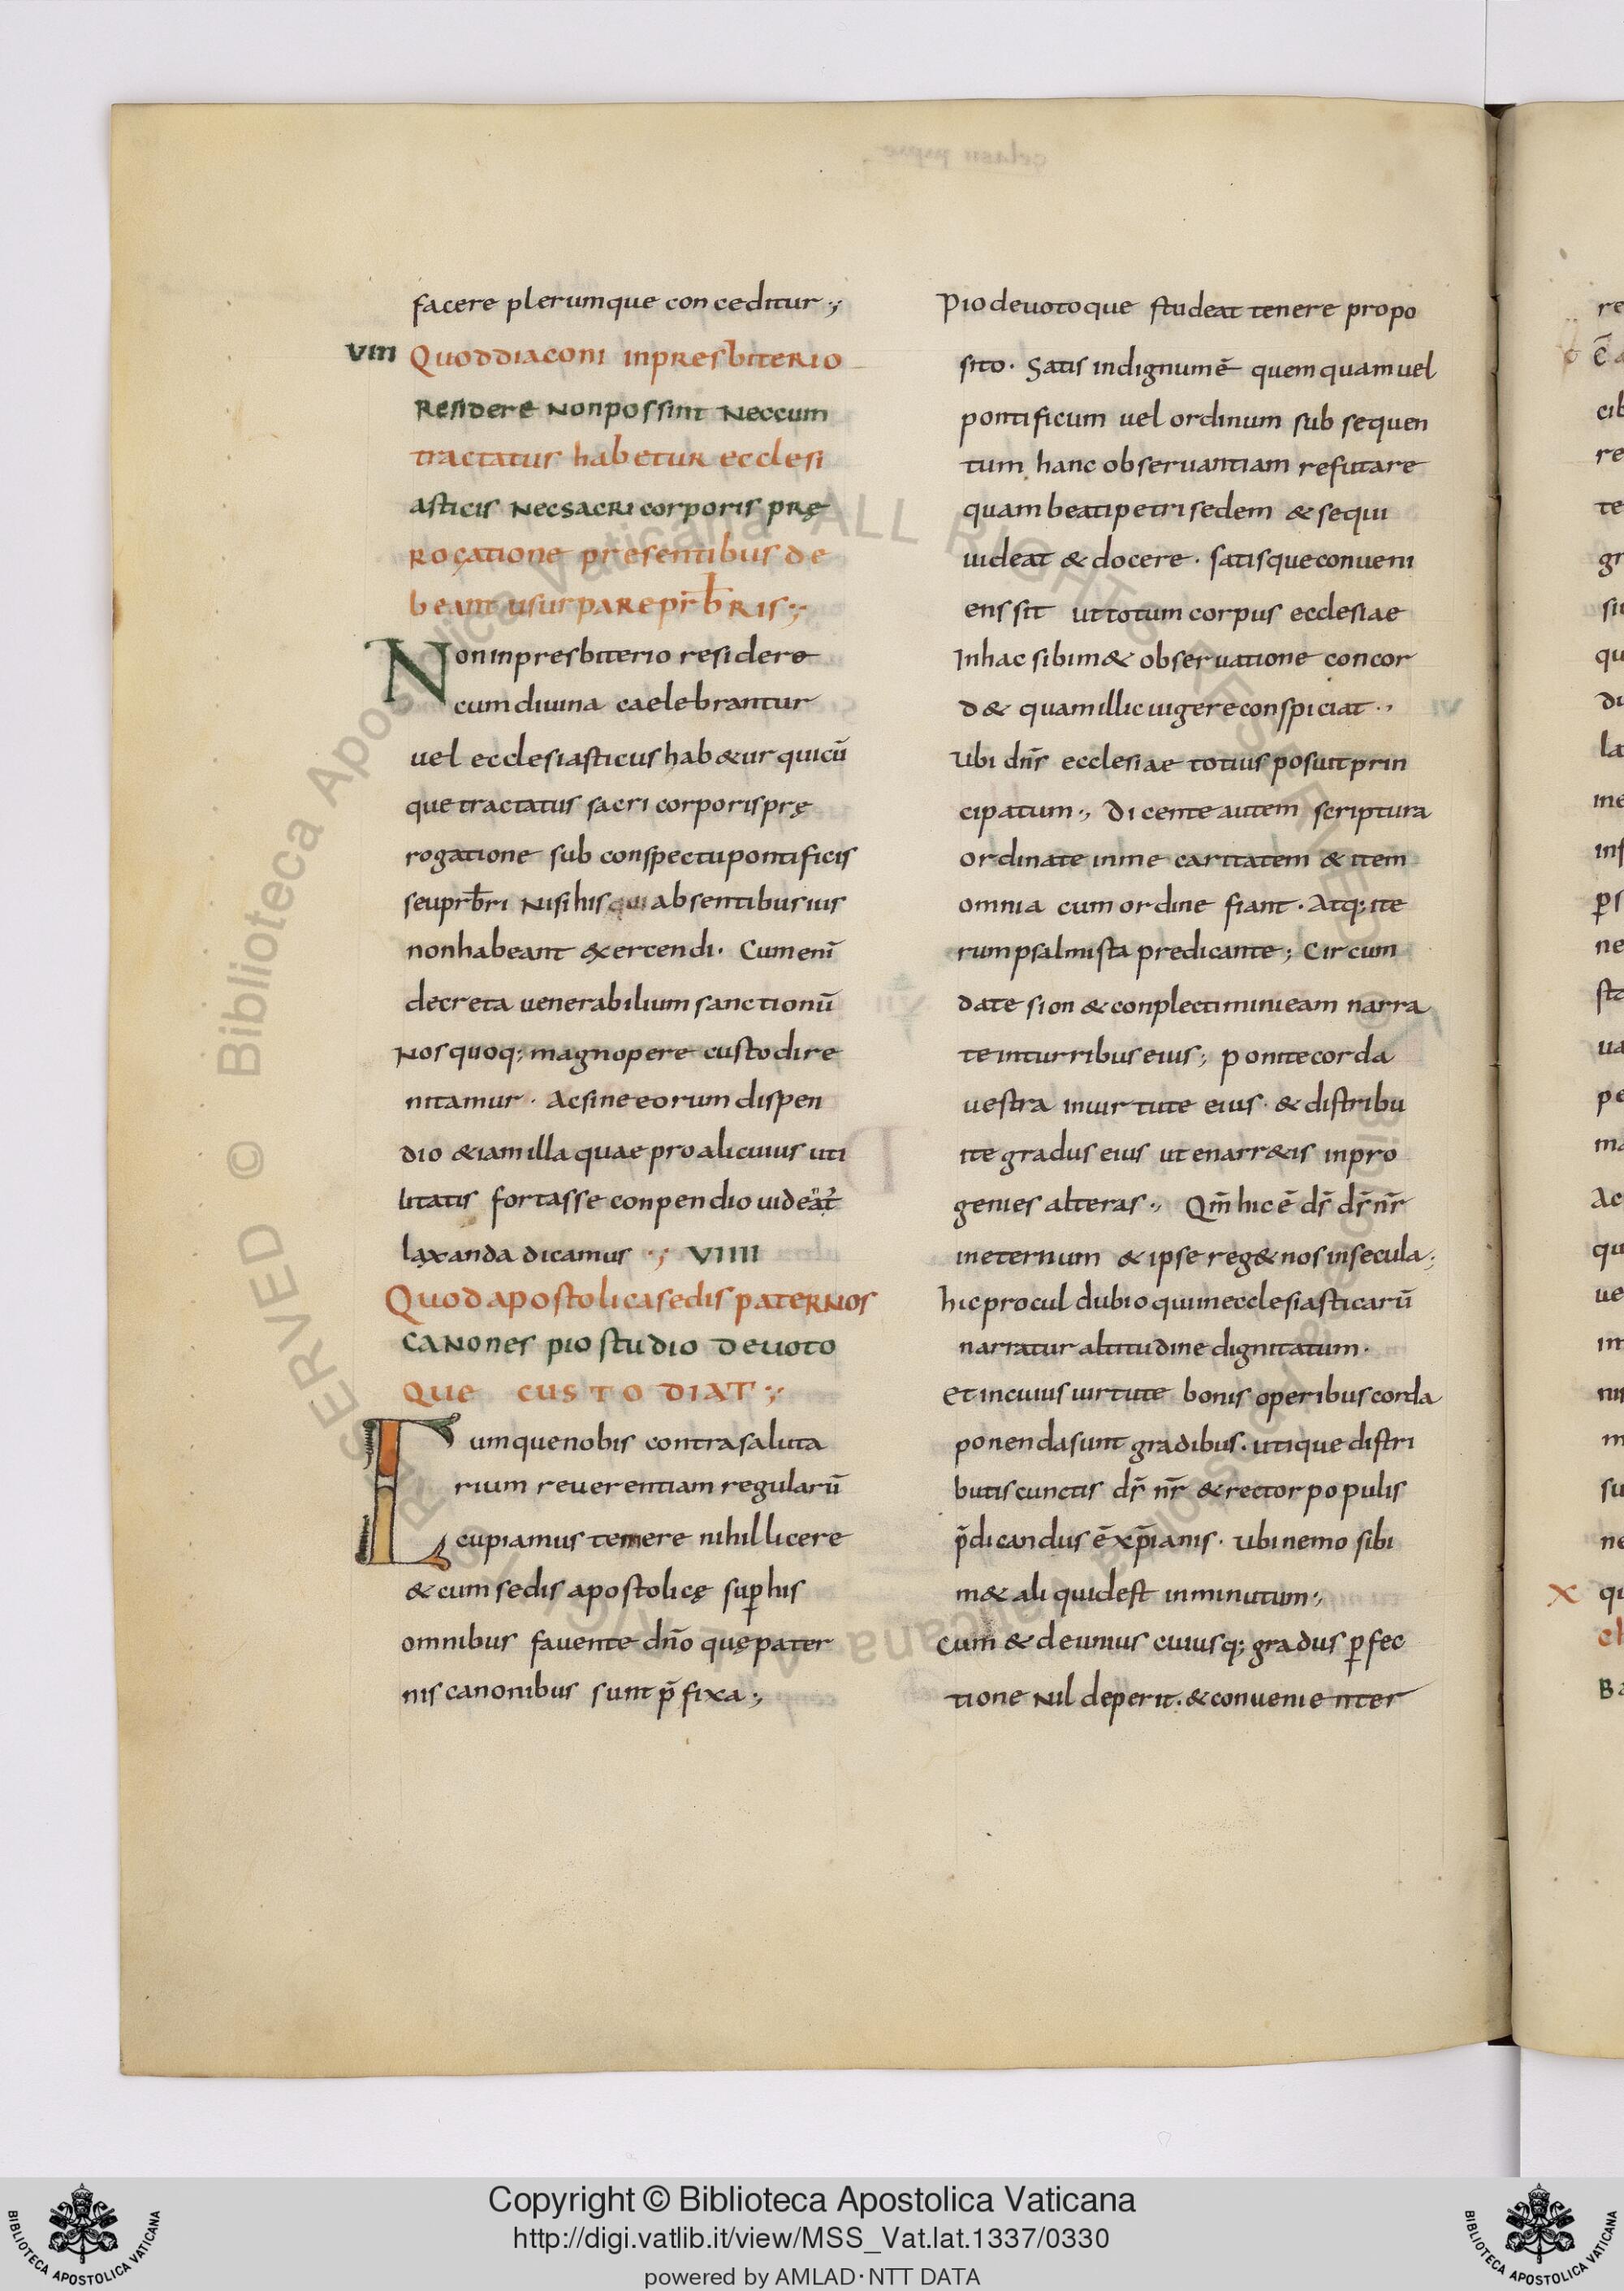 facere plerumque conceditur ·;
VIII Quod diaconi in presbiterio
Residere non possint nec cum
tractatus habetur ecclesi
asticis nec sacri corporis prę
rogatione presentibus de
beant usurpare pr̄b̄ris ·;
Non in presbiterio residere
cum diuina caelebrantur
uel ecclesiasticus hab&ur quicū
que tractatus sacri corporis prę
rogatione sub conspectu pontificis
seu pr̄b̄ri nisi his qui absentibus ius
non habeant &ercendi · Cum enī
decreta uenerabilium sanctionū
Nos quoq; magnopere custodire
nitamur · Ac sine eorum dispen
dio &iam illa quae pro alicuius uti
litatis fortasse conpendio uideat̄
laxanda dicamus ·; VIIII
Quod apostolica sedis paternos
canones pio studio deuoto
que custodiat ·;
Cumque nobis contra saluta
rium reuerentiam regularū
cupiamus temere nihil licere
& cum sedis apostolicę sup̄ his
omnibus fauente dn̄o quę pater
nis canonibus sunt p̄fixa ·;
Pio deuotoque studeat tenere propo
sito · Satis indignum ē quemquam uel
pontificum uel ordinum subsequen
tum hanc obseruantiam refutare
quam beati petri sedem & sequi
uideat & docere · satisque conueni
ens sit ut totum corpus ecclesiae
In hac sibim& obseruatione concor
d& quam illic uigere conspiciat ·,
Ubi dn̄s ecclesiae totius posuit prin
cipatum ·, Dicente autem scriptura
ordinate in me caritatem & item
omnia cum ordine fiant · Atq; ite
rum psalmista predicante ; Circum
date sion & conplectimini eam narra
te in turribus eius ; ponite corda
uestra in uirtute eius · & distribu
ite gradus eius ut enarr&is in pro
genies alteras ·, Qm̄ hic ē ds̄ ds̄ nr̄
in eternum & ipse reg& nos in secula ;
hic procul dubio qui in ecclesiasticarū
narratur altitudine dignitatum ·
Et in cuius uirtute bonis operibus corda
ponenda sunt gradibus · utique distri
butis cunctis ds̄ nr̄ & rector populis
p̄dicandus ē xp̄ianis · Ubi nemo sibi
m& aliquid est inminutum ·,
Cum & de unius cuiusq; gradus p̄fec
tione nil deperit · & conuenienter
Copyright © Biblioteca Apostolica Vaticana
http://digi.vatlib.it/view/MSS_Vat.lat.1337/0330
powered by AMLAD·NTT DATA
BIBLIOTECA APOSTOLICA VATICANA
BIBLIOTECA APOSTOLICA VATICANA